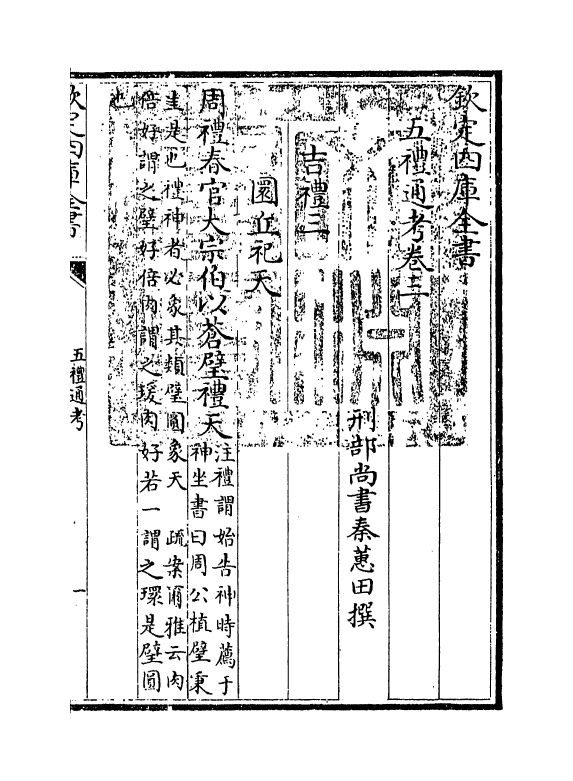 欽定四庫全書
五禮通考卷三
刑部尚書秦蕙田撰
吉禮三
圜丘祀天
周禮春官大宗伯以蒼璧禮天
注禮謂始告神時薦于
神坐書曰周公植璧秉
圭是也禮神者必象其類璧圜象天　疏案爾雅云肉
倍好謂之璧好倍肉謂之瑗肉好若一謂之環是璧圓
也
欽定四庫全書
五禮通考
一